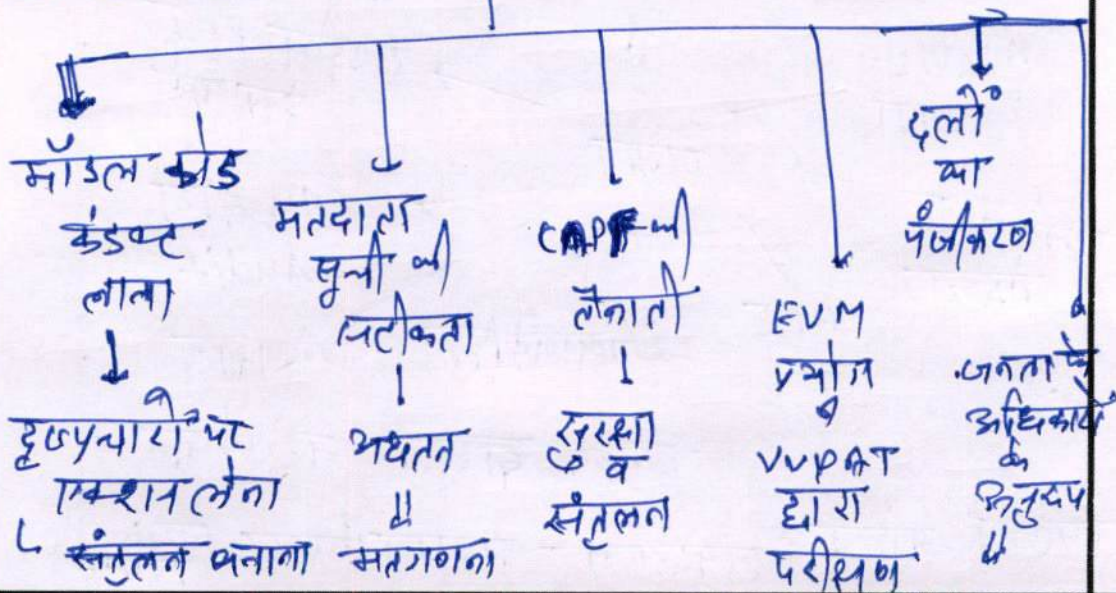 मॉडल कोड
कंडक्ट
लाना
दुष्प्रचारों पर
एक्शन लेना
संतुलन बनाना
मतदाता
सूची की
सटीकता
अद्यतन
मतगणना
CAPF की
तैनाती
सुरक्षा
व
संतुलन
EVM
प्रयोग
VVPAT
द्वारा
परीक्षण
दलों
का
पंजीकरण
जनता के
अधिकारों
के
अनुरूप